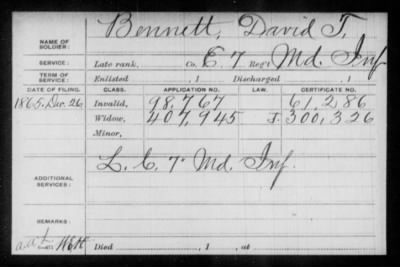 NAME OF SOLDIER: Bennett, David T.
SERVICE: Late rank, Co. E. 7 Reg't Md. Inf
TERM OF SERVICE: Enlisted , 1 Discharged , 1
DATE OF FILING. CLASS. APPLICATION NO. LAW. CERTIFICATE NO.
1865. Dec. 26 Invalid, 98,767 61,286
Widow, 407,945 J. 300,326
Minor,
ADDITIONAL SERVICES: L. C. 7" Md. Inf.
REMARKS:
Died , 1 , at